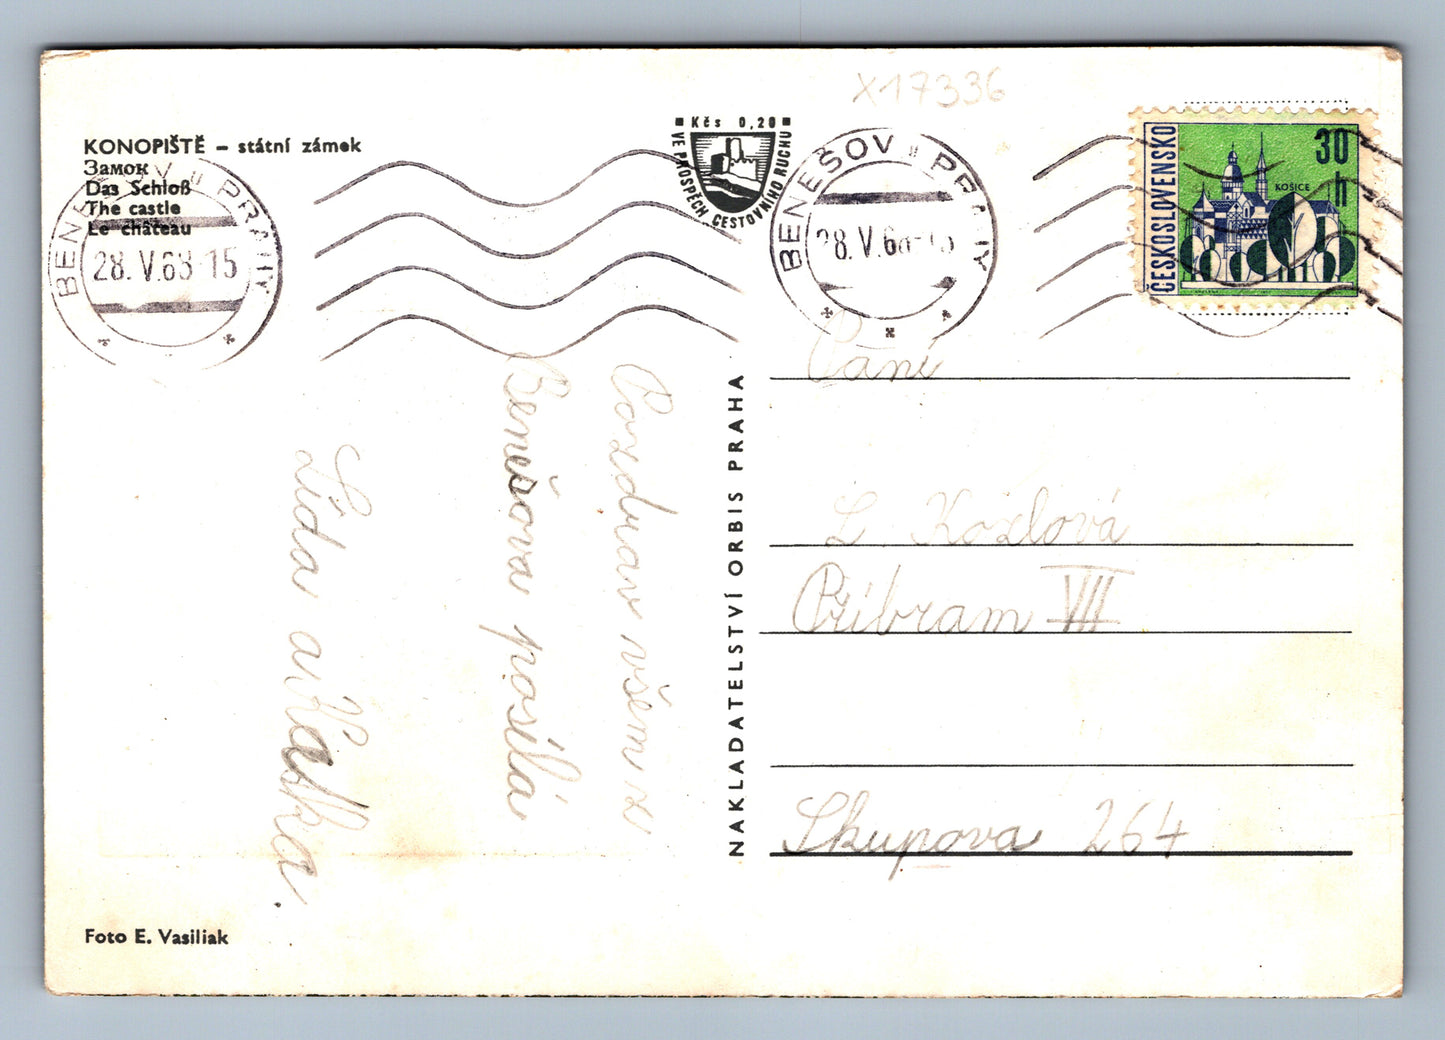 X17336
KONOPIŠTĚ – státní zámek
Замок
Das Schloß
The castle
Le château
BENEŠOV U PRAHY
28.V.68-15
Kčs 0,20
VE PROSPĚCH CESTOVNÍHO RUCHU
BENEŠOV U PRAHY
28.V.68-15
ČESKOSLOVENSKO
30 h
KOŠICE
Pozdrav všem z
Benešova posílá
Lída
NAKLADATELSTVÍ ORBIS PRAHA
Paní
L. Kozlová
Příbram VII
Skupova 264
Foto E. Vasiliak